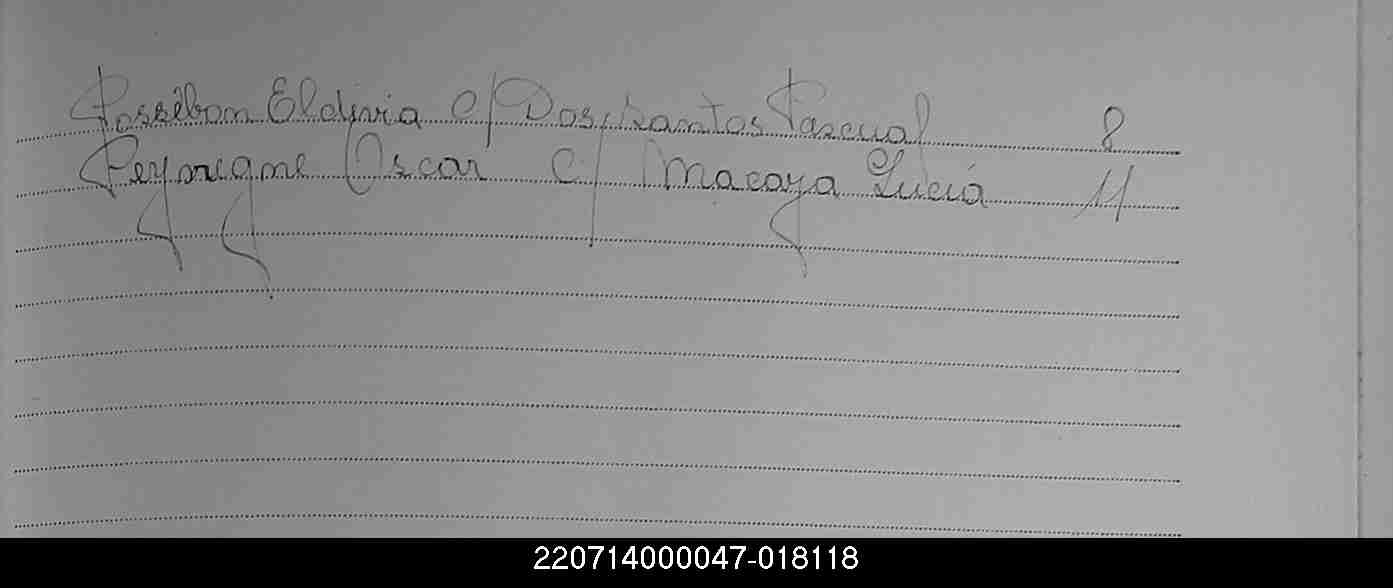 Possebon Elduvia c/ Dos Santos Pascual 8
Peyregne Oscar c/ Macaya Lucía 11
220714000047-018118